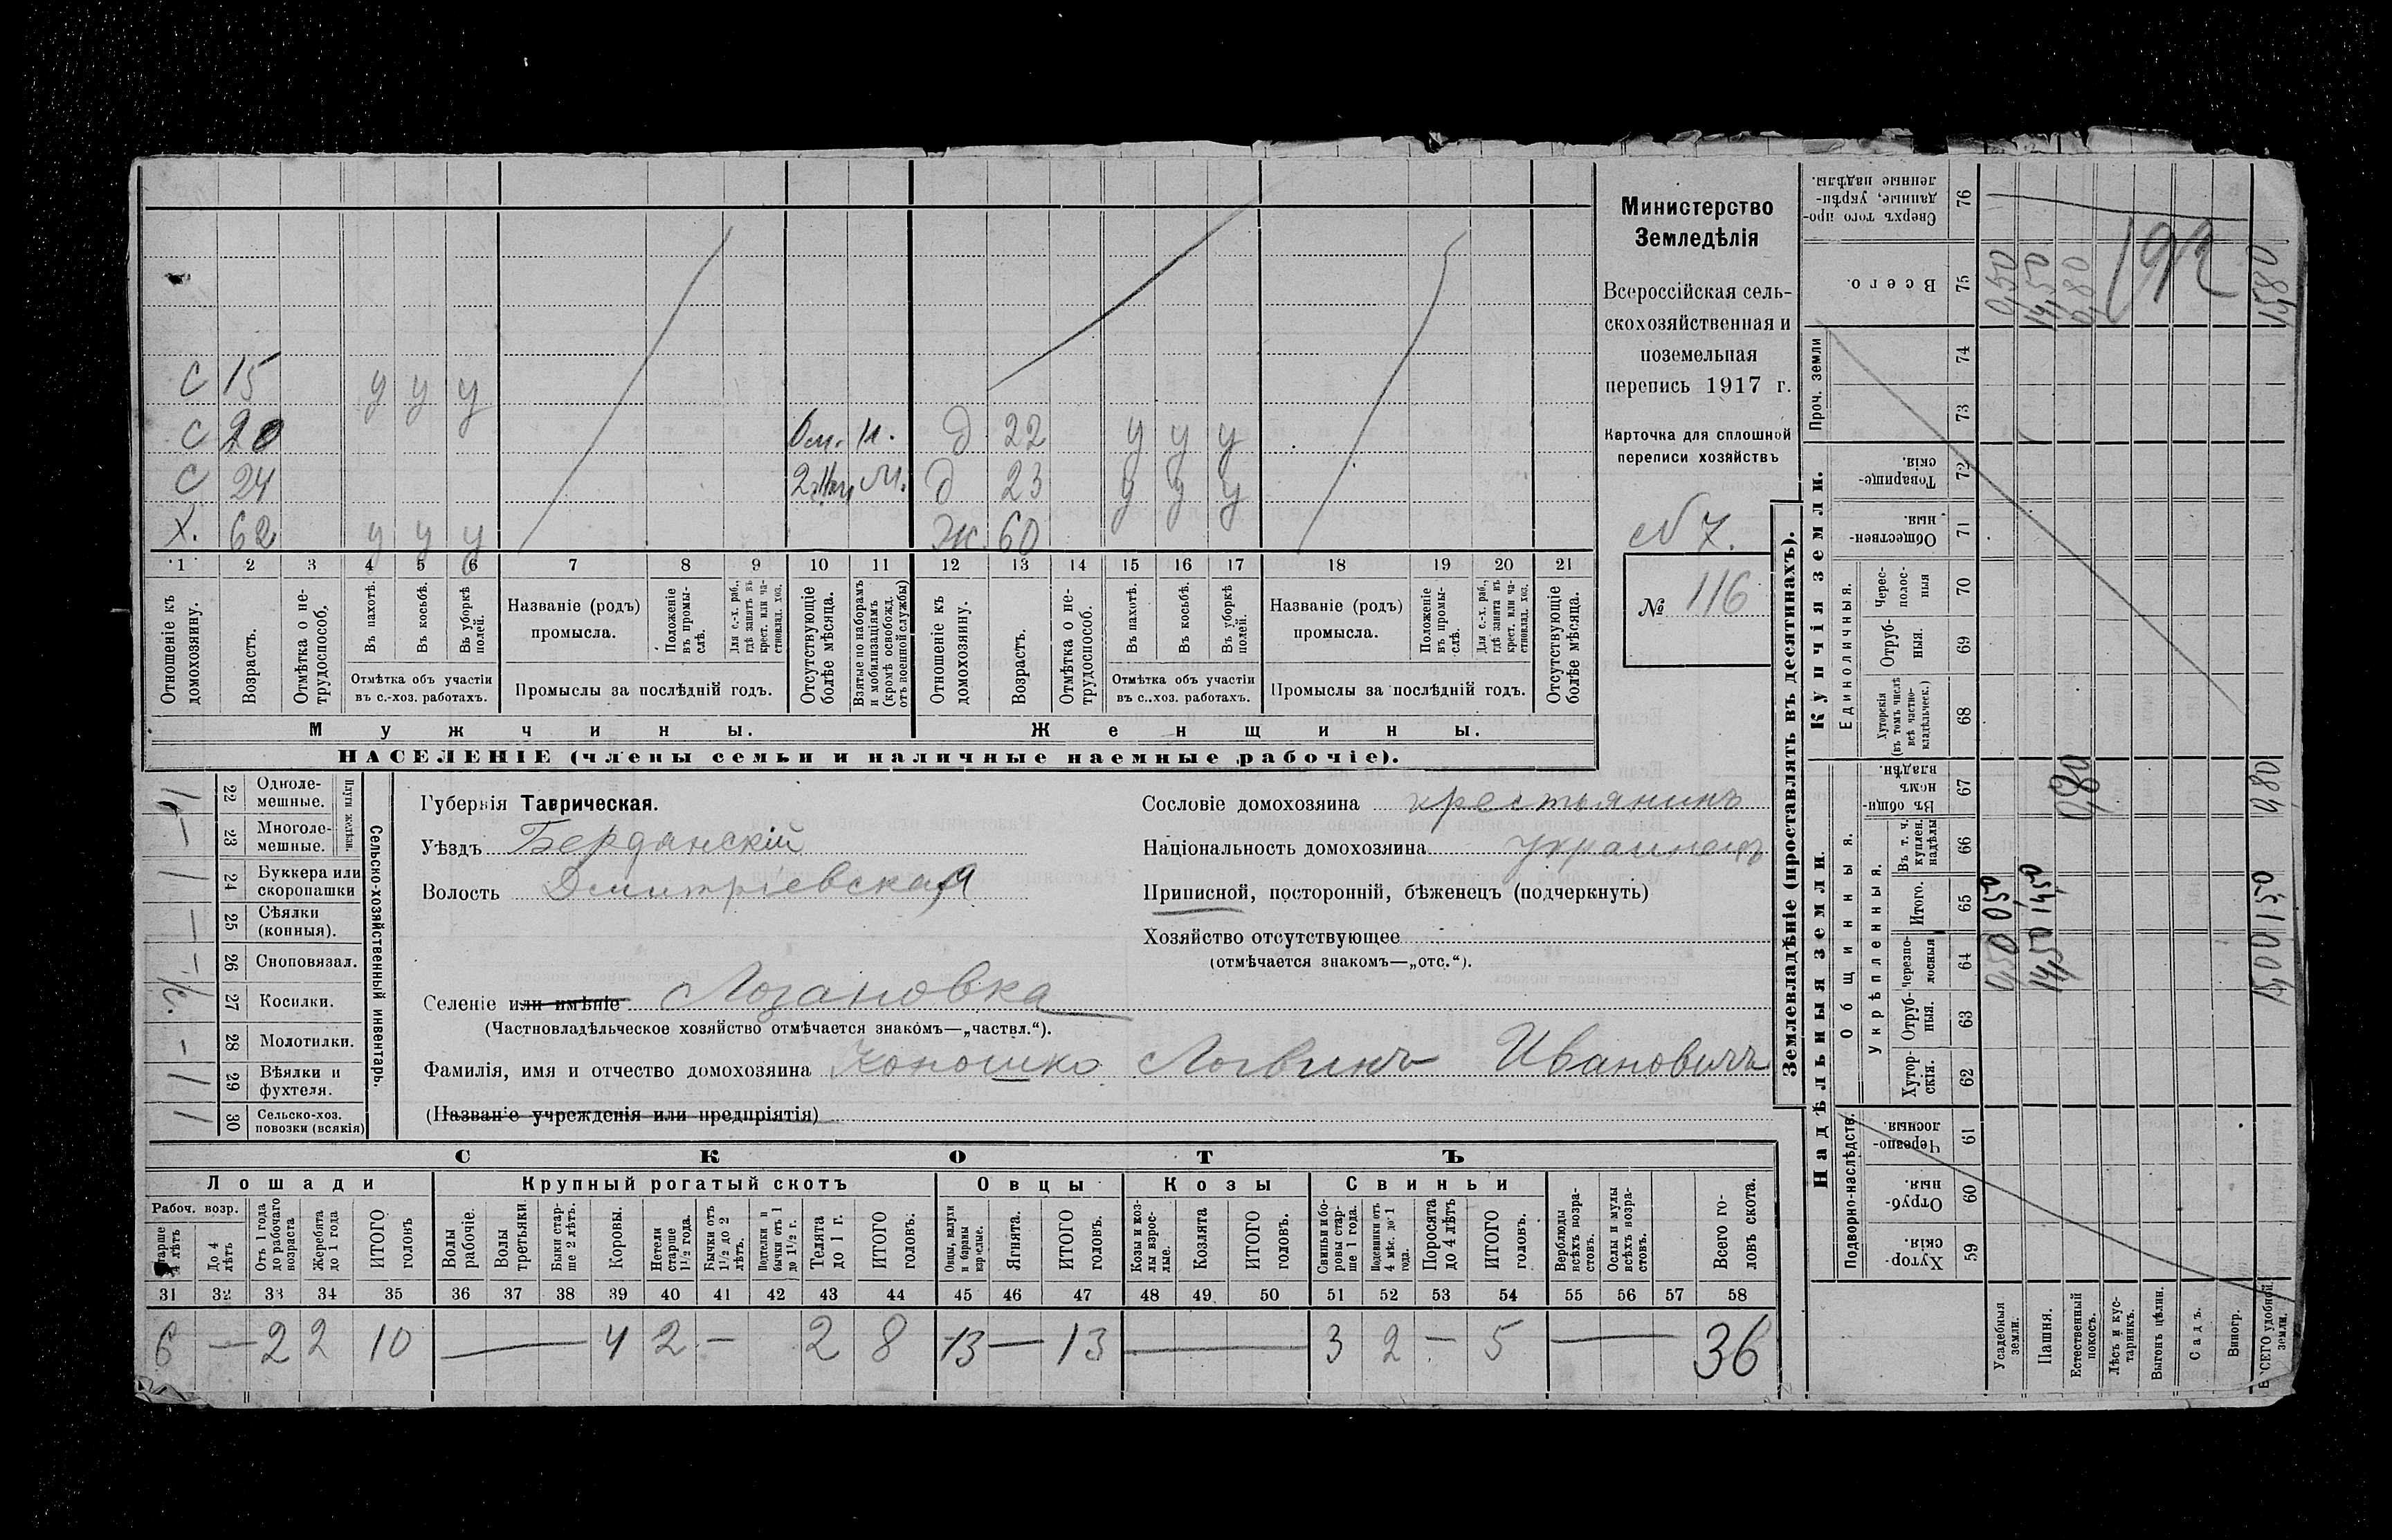 Министерство
Земледѣлія
Всероссійская сель-
скохозяйственная и
поземельная
перепись 1917 г.
Карточка для сплошной
переписи хозяйствъ
N 7.
№ 116
С 15 у у у
С 20 н. д 22 у у у
С 24 м. д 23 у у у
Х. 62 у у у Ж. 60
1 2 3 4 5 6 7 8 9 10 11 12 13 14 15 16 17 18 19 20 21
Отношеніе къ домохозяину.
Возрастъ.
Отмѣтка о не-трудоспособ.
Въ пахотѣ.
Въ косьбѣ.
Въ уборкѣ полей.
Отмѣтка объ участіи
въ с.-хоз. работахъ.
Названіе (родъ)
промысла.
Положеніе въ промы-слѣ.
Для с.-х. раб., гдѣ занятъ въ крест. или ча-стновлад. хоз.
Промыслы за послѣдній годъ.
Отсутствующіе болѣе мѣсяца.
Взятые по наборамъ и мобилизаціямъ (кромѣ освобожд. отъ военной службы)
Отношеніе къ домохозяину.
Возрастъ.
Отмѣтка о не-трудоспособ.
Въ пахотѣ.
Въ косьбѣ.
Въ уборкѣ полей.
Отмѣтка объ участіи
въ с..хоз. работахъ.
Названіе (родъ)
промысла.
Положеніе въ промы-слѣ.
Для с.-х. раб., гдѣ занята въ крест. или ча-стновлад. хоз.
Промыслы за послѣдній годъ.
Отсутствующіе болѣе мѣсяца.
Мужчины. Женщины.
НАСЕЛЕНІЕ (члены семьи и наличные наемные рабочіе).
Сельско-хозяйственный инвентарь.
Плуги желѣзн.
22 Одноле-мешные.
— 23 Многоле-мешные.
1 24 Буккера или скоропашки
— 25 Сѣялки (конныя).
— 26 Сноповязал.
27 Косилки.
- 28 Молотилки.
1 29 Вѣялки и фухтеля.
1 30 Сельско-хоз. повозки (всякія)
Губернія Таврическая.
Уѣздъ Бердянскій
Волость Дмитріевская
Селеніе или имѣніе Лозановка
(Частновладѣльческое хозяйство отмѣчается знакомъ—„частвл.“).
Фамилія, имя и отчество домохозяина Коношко Логвинъ Ивановичъ
(Названіе учрежденія или предпріятія)
Сословіе домохозяина крестьянинъ
Національность домохозяина украинецъ
Приписной, посторонній, бѣженецъ (подчеркнуть)
Хозяйство отсутствующее
(отмѣчается знакомъ—„отс.“).
СКОТЪ
Лошади Крупный рогатый скотъ Овцы Козы Свиньи
Рабоч. возр.
Старше 4 лѣтъ
До 4 лѣтъ
Отъ 1 года до рабочаго возраста
Жеребята до 1 года
ИТОГО головъ
Волы рабочіе.
Волы третьяки.
Быки стар-ше 2 лѣтъ.
Коровы.
Нетели старше 1½ года.
Бычки отъ 1½ до 2 лѣтъ.
Подтелки и бычки отъ 1 до 1½ г.
Телята до 1 г.
ИТОГО головъ.
Овцы, валухи и бараны взрослые.
Ягнята.
ИТОГО головъ.
Козы и коз-лы взрос-лые.
Козлята
ИТОГО головъ.
Свиньи и бо-ровы стар-ше 1 года.
Подсвинки отъ 4 мѣс. до 1 года.
Поросята до 4 лѣтъ
ИТОГО головъ.
Верблюды всѣхъ возра-стовъ.
Ослы и мулы всѣхъ возра-стовъ.
Всего го-ловъ скота.
31 32 33 34 35 36 37 38 39 40 41 42 43 44 45 46 47 48 49 50 51 52 53 54 55 56 57 58
6 — 2 2 10 — 4 2 — 2 8 13 — 13 — 3 2 — 5 — 36
Землевладѣніе (проставлять въ десятинахъ).
Надѣльныя земли. Купчія земли. Проч. земли
Подворно-наслѣдств.
Общинныя.
Укрѣпленныя.
Единоличныя.
59 Хутор-скія.
60 Отруб-ныя.
61 Черезпо-лосныя.
62 Хутор-скія.
63 Отруб-ныя.
64 черезпо-лосныя
65 Итого.
66 Въ т. ч. куплен. надѣлы
67 Въ общин-номъ владѣн.
68 Хуторскія (въ томъ числѣ всѣ частно-владѣльческ.)
69 Отруб-ныя.
70 Черес-полос-ныя
71 Обществен-ныя.
72 Товарище-скія.
73
74
75 Всего.
76 Сверхъ того про-данные, укрѣп-ленные надѣлы.
Усадебныя земли. 0,50 0,50 0,50
Пашня. 14,50 14,50 14,50
Естественный покосъ. 0,80 0,80
Лѣсъ и кус-тарникъ.
Выгонъ цѣлин.
Садъ.
Виногр.
ВСЕГО удобной земли. 15,00 15,0 0,80 15,80
192